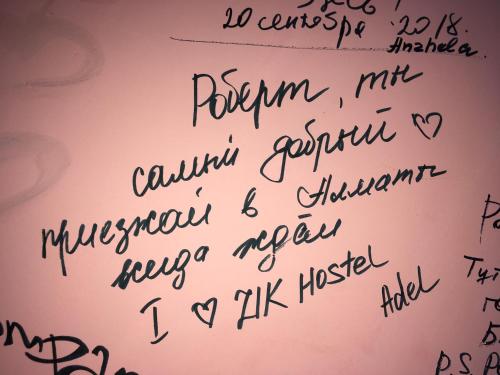 20 сентября 2018.
Anzhela.
Роберт, ты
самый добрый ♡
приезжай в Алматы
всегда ждём
I ♡ ZIK Hostel
Adel
P.S.